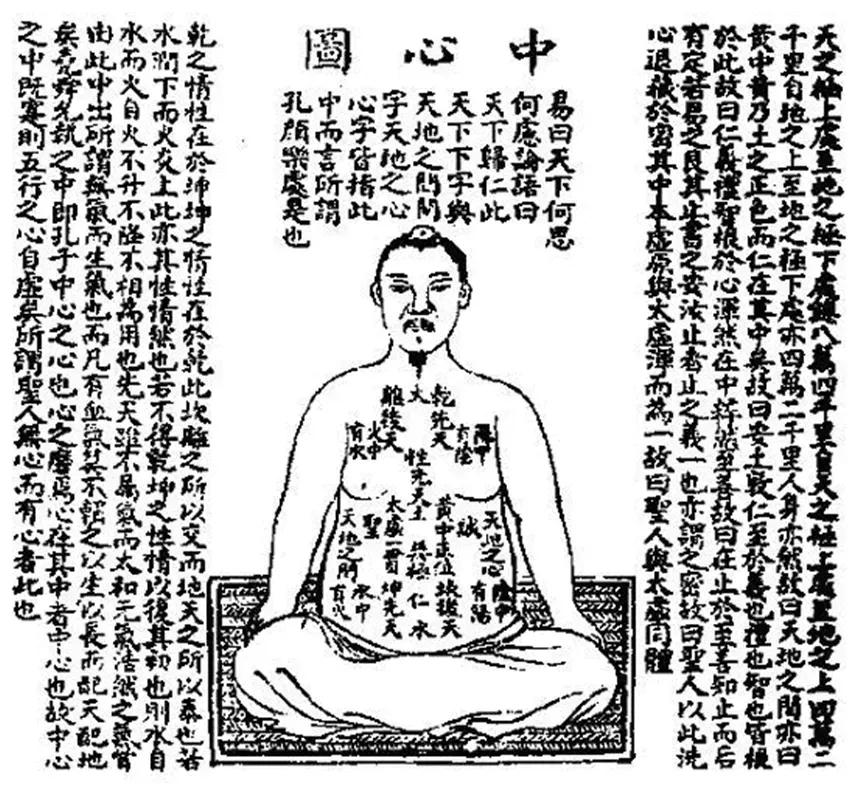 中心圖
天之極上處至地之極下處八萬四千里自天之極上處至地之上四萬二
千里自地之上至地之極下處亦四萬二千里人身亦然故曰天地之間亦曰
黃中黃乃土之正色而仁在其中矣故曰安土敦仁至於義也禮也智也皆根
於此故曰仁義禮智根於心渾然在中粹然至善故曰在止於至善知止而后
有定若易之艮其止書之安汝止者止之義一也亦謂之密故曰聖人以此洗
心退藏於密其中本虛原與太虛渾而為一故曰聖人與太虛同體
易曰天下何思
何慮論語曰
天下歸仁此
天下下字與
天地之間間
字天地之心
心字皆指此
中而言所謂
孔顏樂處是也
陽中有陰
乾先天
火
離後天
火中有水
性先天土
天地之心
黃中正位
太虛一貫
聖
天地之間
陰中有陽
坎後天
仁水
坤先天
水中有火
乾之情性在於坤坤之情性在於乾此坎離之所以交而地天之所以泰也若
水潤下而火炎上此亦其性情然也若不得乾坤之性情以復其初也則水自
水而火自火不升不降不相為用也先天雖不屬氣而太和元氣浩然之氣皆
由此中出所謂無氣而生氣也而凡有血氣莫不之以生以長而配天配地
矣堯舜允執之中即孔子中心之心也心之為心在其中者中心也故中心
之中既虛則五行之心自虛矣所謂聖人無心而有心者此也